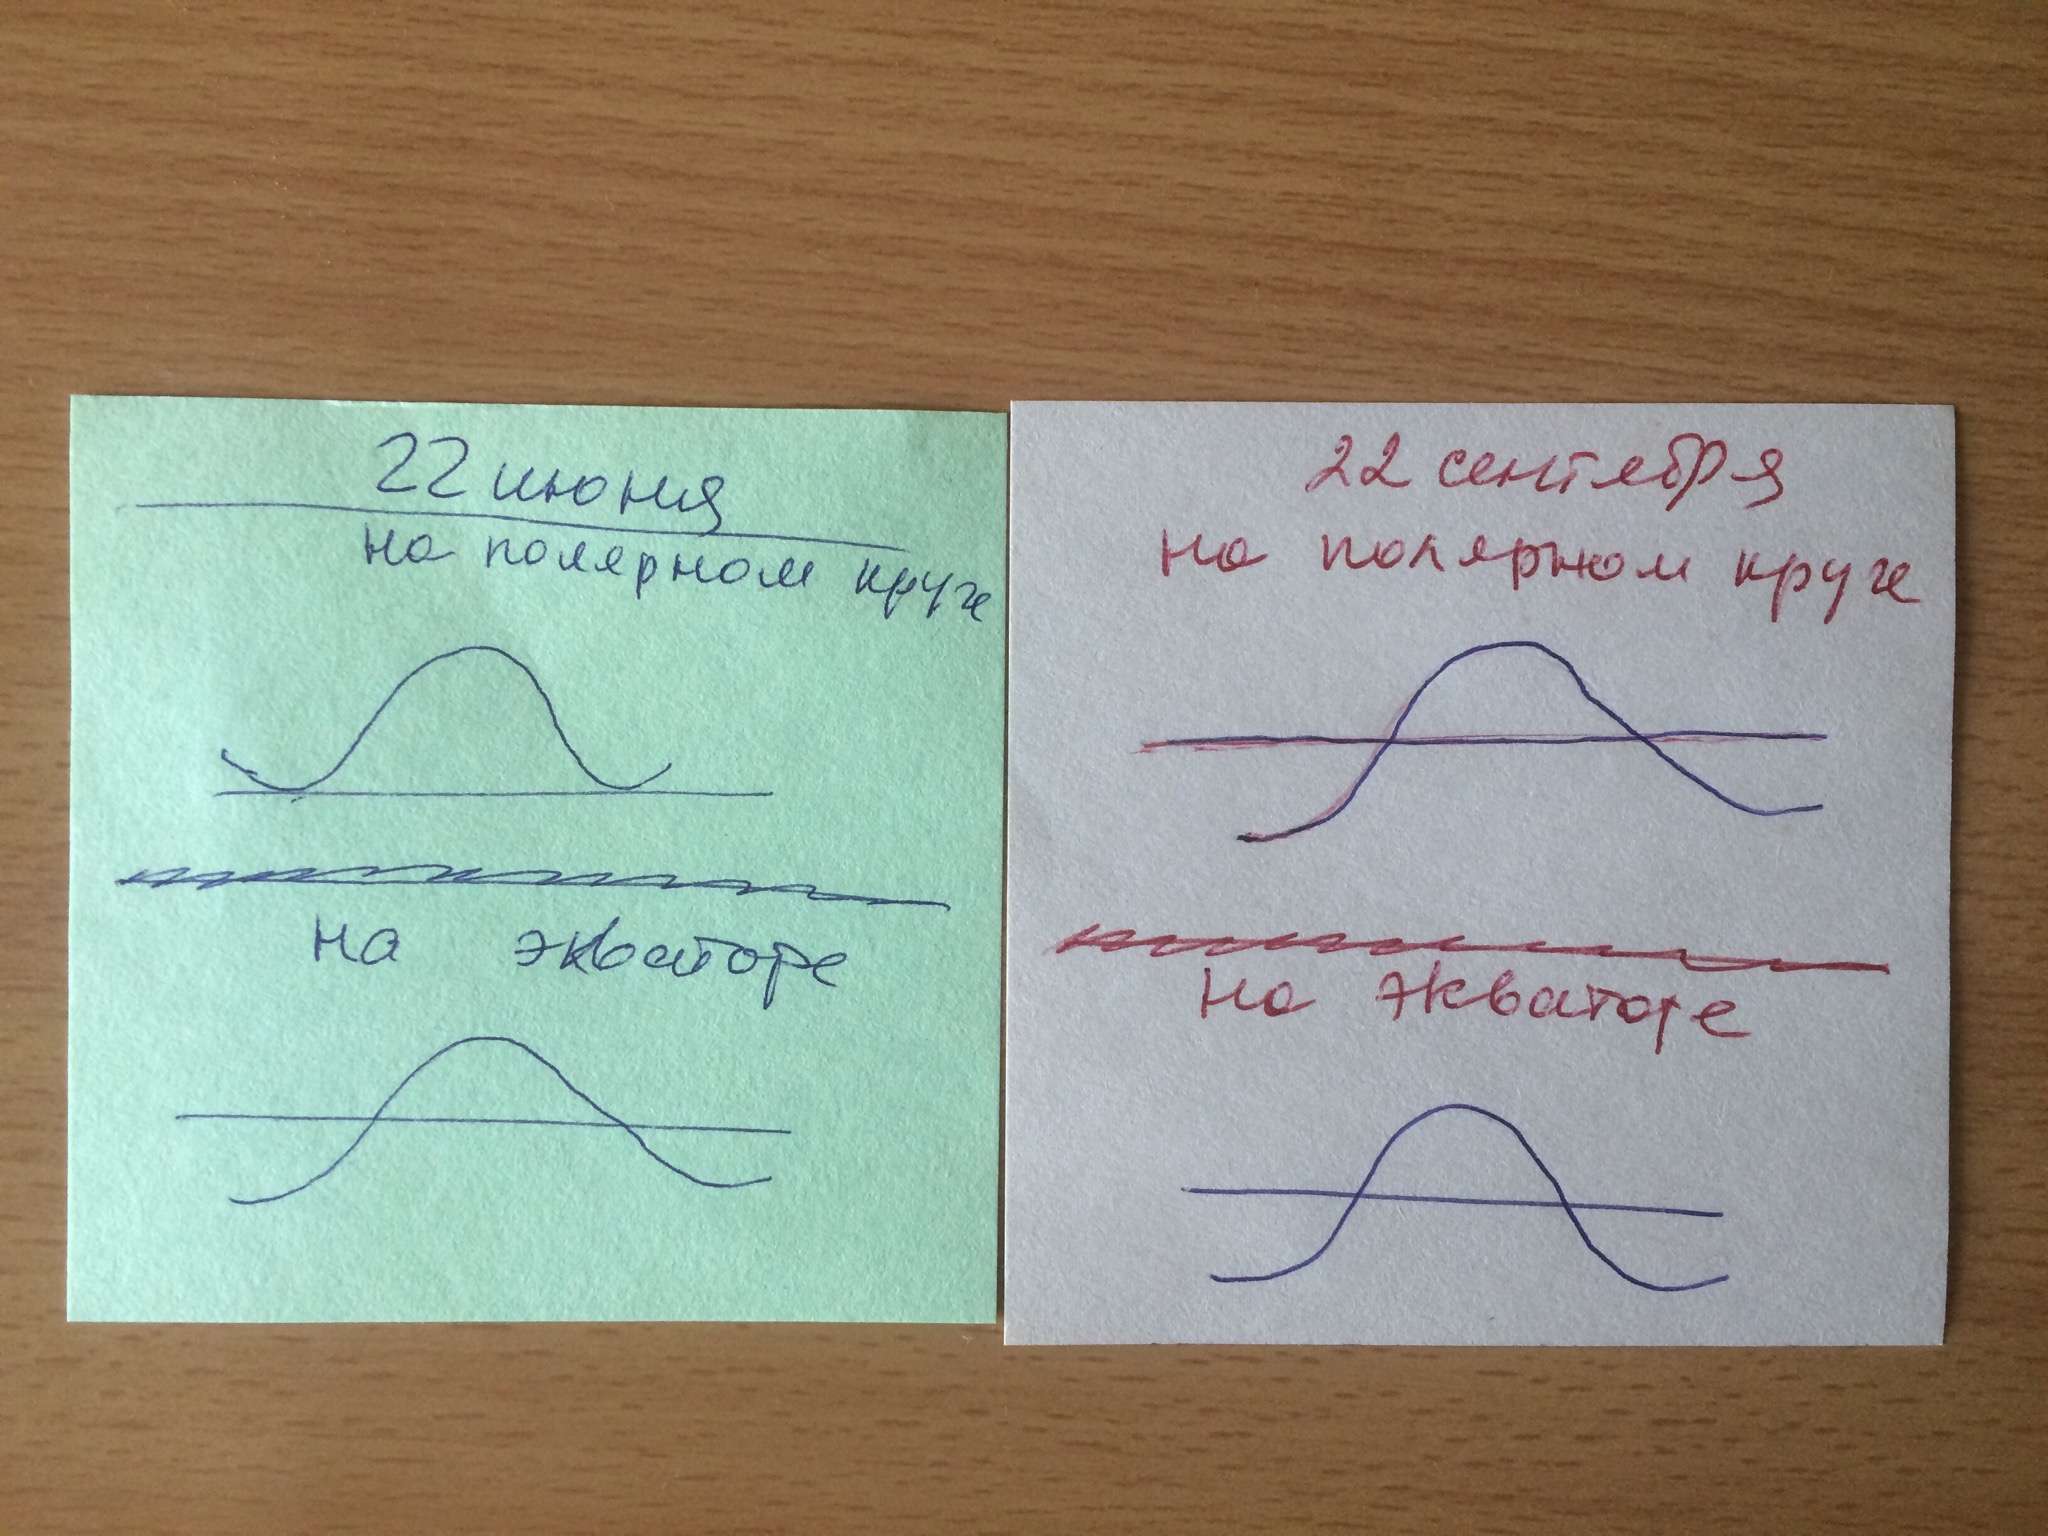 22 июня
на полярном круге
на экваторе
22 сентября
на полярном круге
на экваторе